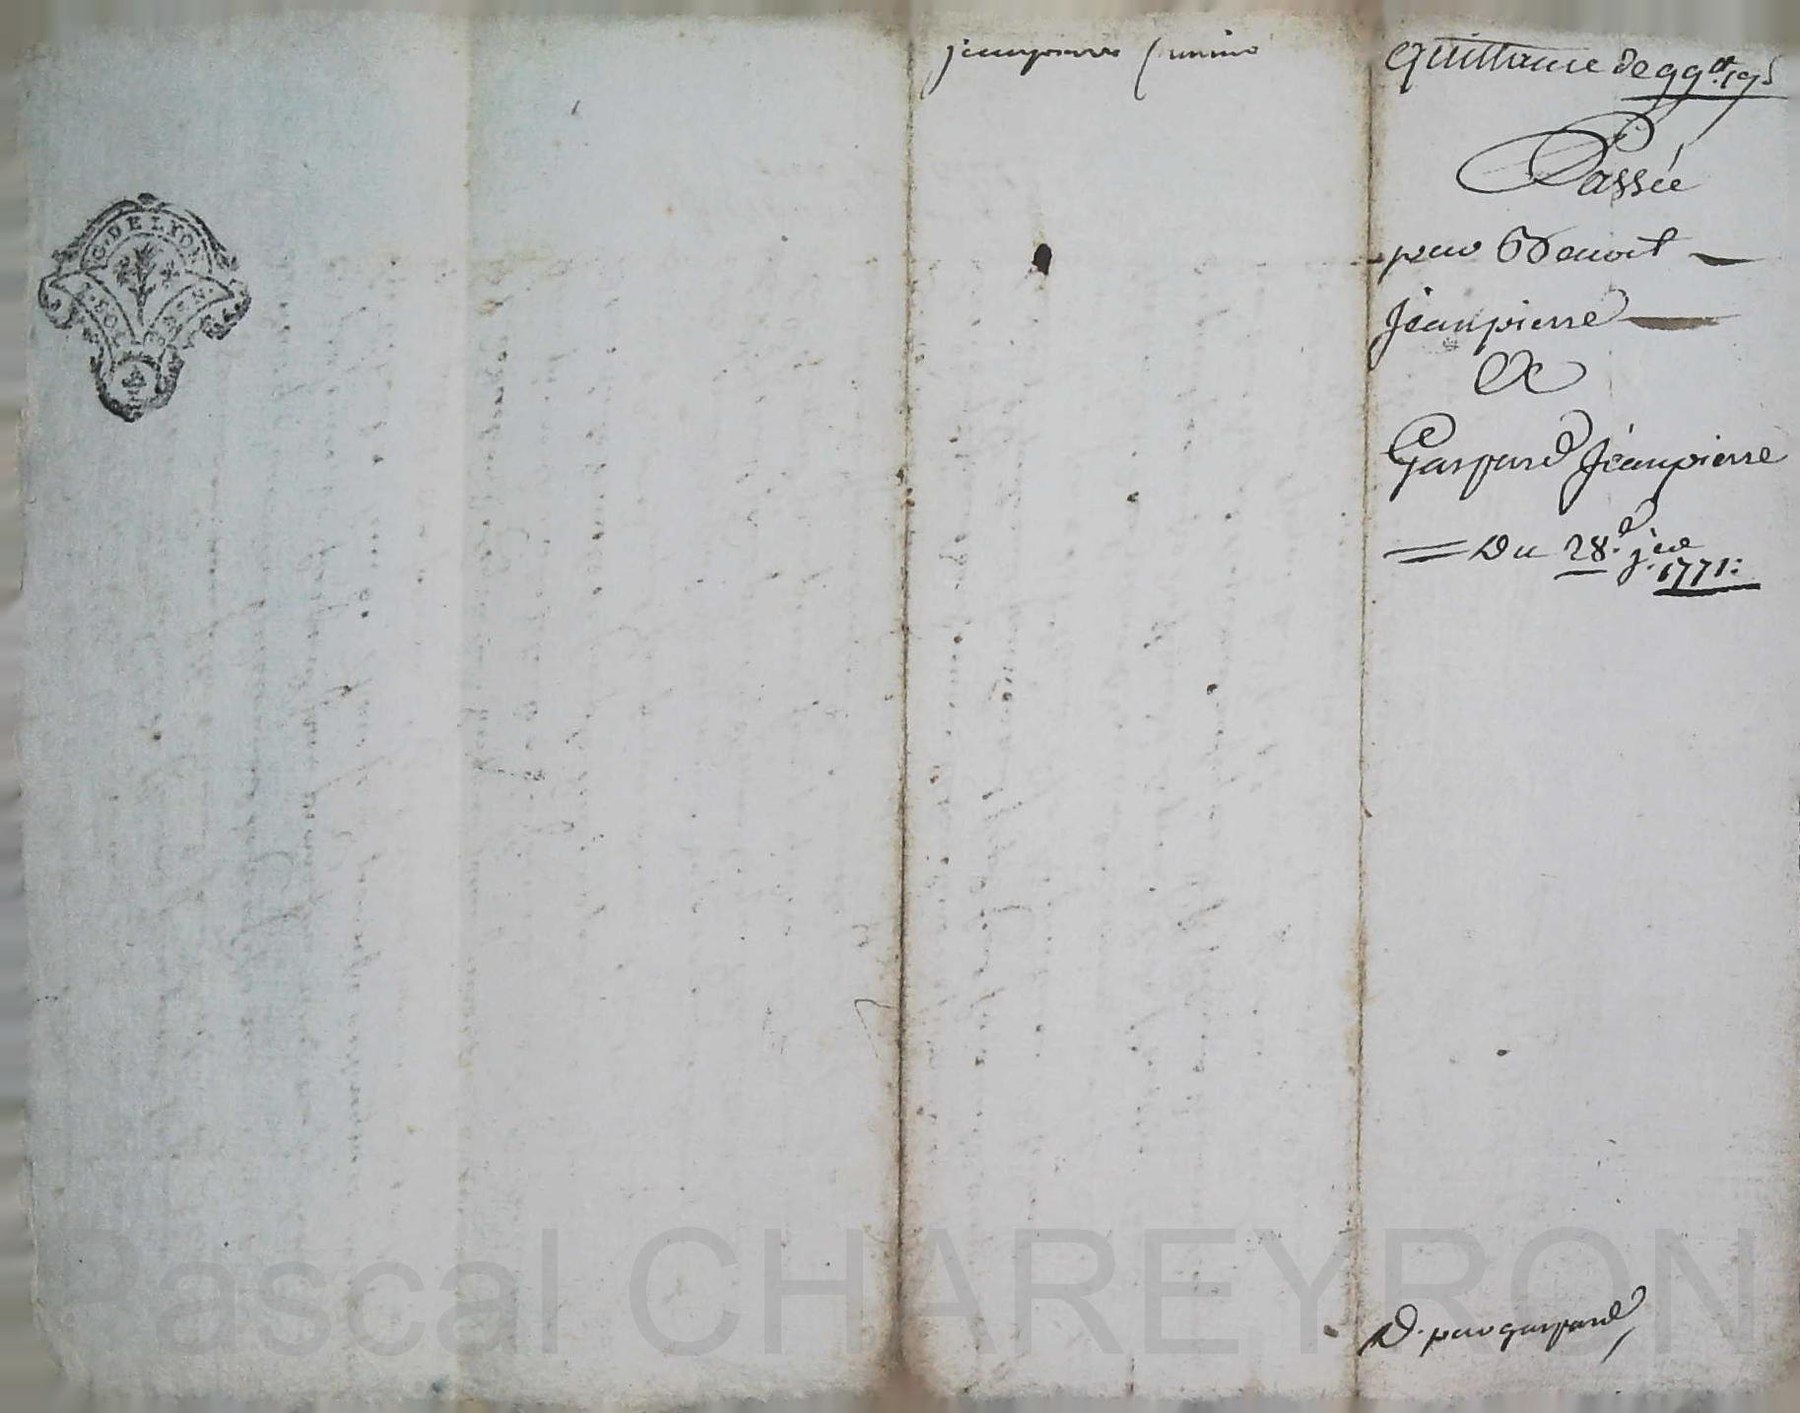 G. DE LYON
SOL
DEN
jeanpierre
Quittance de 99ᵗᵗ 19ˢ
Passée
par Benoit
Jeanpierre
&
Gaspard Jeanpierre
= Du 28. jer
1771:
D. pour gaspard
Pascal CHAREYRON